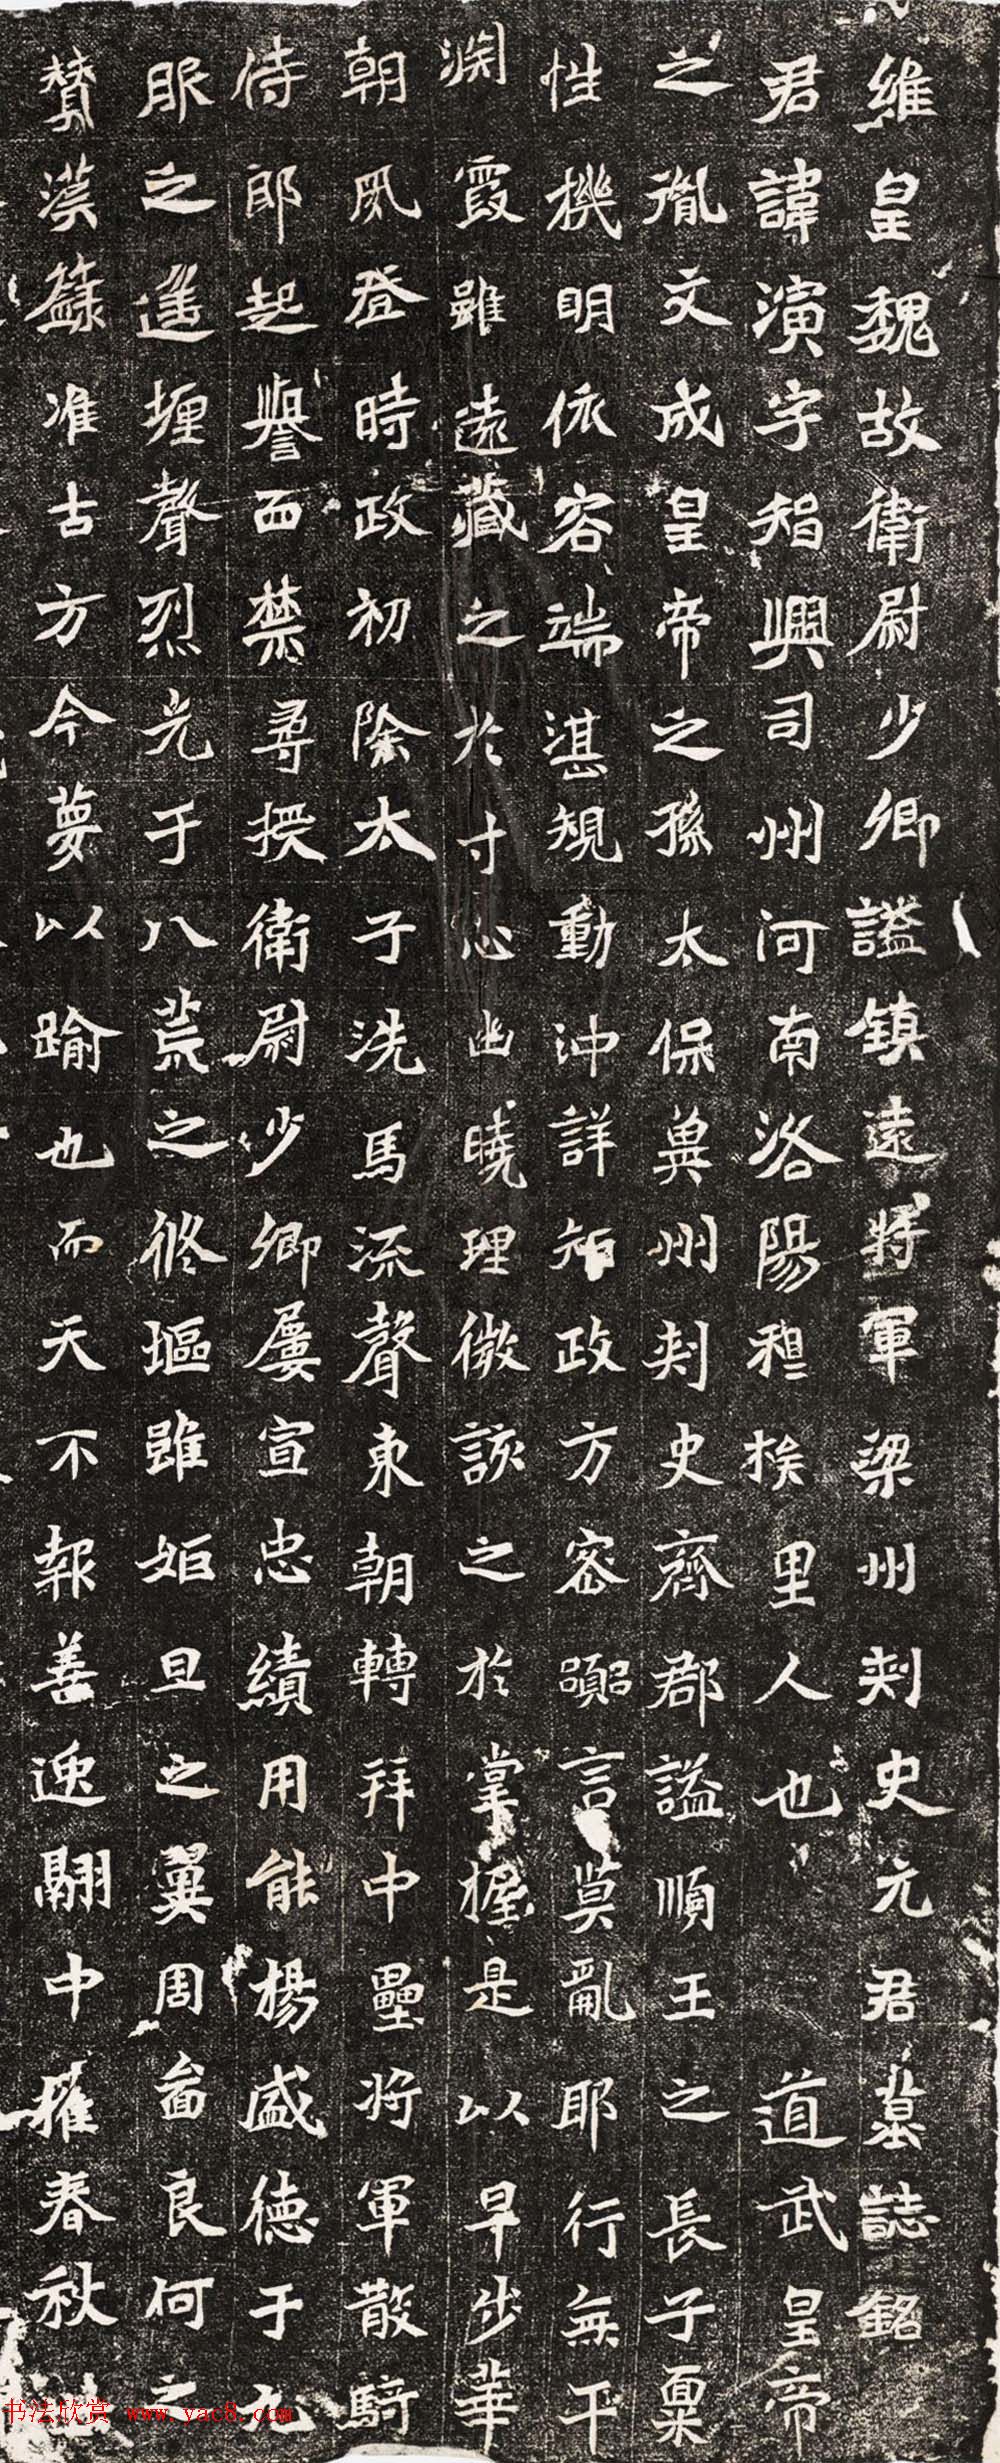 維皇魏故衛尉少卿謚鎮遠將軍梁州刾史元君墓誌銘
君諱演字智興司州河南洛陽穆族里人也道武皇帝
之胤文成皇帝之孫太保冀州刾史齊郡謚順王之長子稟
性機明依容端湛規動沖詳矩政方密頤言莫亂耶行無干
淵霞雖遠藏之於寸心幽曉理微該之於掌握是以早步華
朝夙登時政初除太子洗馬流聲東朝轉拜中壘將軍散騎
侍郎起譽西禁尋授衛尉少卿屢宣忠績用能楊盛德于九
服之進堙聲烈光于八荒之脩塸雖姬旦之翼周留良何之
贊漢籙准古方今夢以踰也而天不報善逸翮中摧春秋
书法欣赏 www.yac8.com